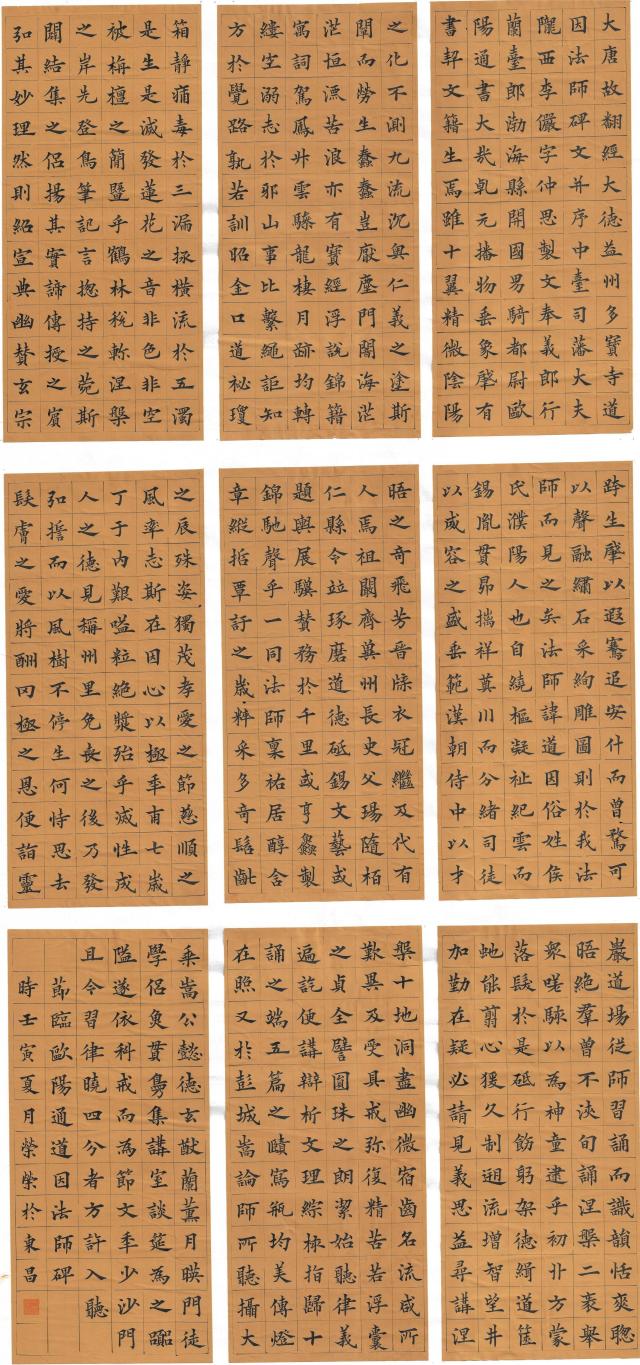 大唐故翻經大德益州多寶寺道
因法師碑文并序中臺司藩大夫
隴西李儼字仲思製文奉義郎行
蘭臺郎渤海縣開國男騎都尉歐
陽通書大哉乹元播物垂象肇有
書契文籍生焉雖十翼精微陰陽
之化不測九流沉奧仁義之塗斯
闡而勞生蠢蠢豈厭塵門闇海茫
茫恒漂苦浪亦有寶經浮說錦籍
寓詞駕鳳升雲驂龍棲月跡均轉
縷空溺志於邪山事比繫繩詎知
方於覺路孰若訓昭金口道祕瓊
箱靜痛毒於三漏拯橫流於五濁
是生是滅發蓮花之音非色非空
被栴檀之簡暨乎鶴林稅軫涅槃
之岸先登鳥筆記言揔持之菀斯
闢結集之侶揚其實諦傳授之賓
弘其妙理然則紹宣典幽賛玄宗
跨生肇以遐騫追安什而曾騖可
以聲融繡石采絢雕圖則於我法
師而見之矣法師諱道因俗姓侯
氏濮陽人也自繞樞凝祉紀雲而
錫胤貫昴摛祥奠川而分緒司徒
以威容之盛垂範漢朝侍中以才
晤之奇飛芳晉牒衣冠繼及代有
人焉祖闢齊冀州長史父瑒隨柏
仁縣令竝琢磨道德砥錫文藝或
題輿展驥賛務於千里或亨鱻製
錦馳聲乎一同法師稟祐居醇含
章縱抵覃訏之歲粹采多奇髫齔
之辰殊姿獨茂孝愛之節慈順之
風率志斯在因心以極年甫七歲
丁于內艱嗌粒絕漿殆乎滅性成
人之德見稱州里免喪之後乃發
弘誓而以風樹不停生何恃思去
髮膚之愛將酬罔極之恩便詣靈
巖道場從師習誦而識韻恬爽聰
晤絕羣曾不浹旬誦涅槃二袠舉
眾嗟駭以為神童逮乎初丱方蒙
落髮於是砥行飭躬架德緝道筐
虵能翦心猨久制迴流增智望井
加勤在疑必請見義思益尋講涅
槃十地洞盡幽微宿齒名流咸所
歎異及受具戒弥復精苦若浮囊
之貞全譬圓珠之朗潔始聽律義
遍訖便講辯析文理綜核指歸十
誦之端五篇之賾寫瓶均美傳燈
在照又於彭城嵩論師所聽攝大
乘嵩公懿德玄猷蘭薰月暎門徒
學侶魚貫鳧集講室談筵為之嚻
隘遂依科戒而為節文年少沙門
且令習律曉四分者方許入聽
節臨歐陽通道因法師碑
時壬寅夏月榮榮於東昌